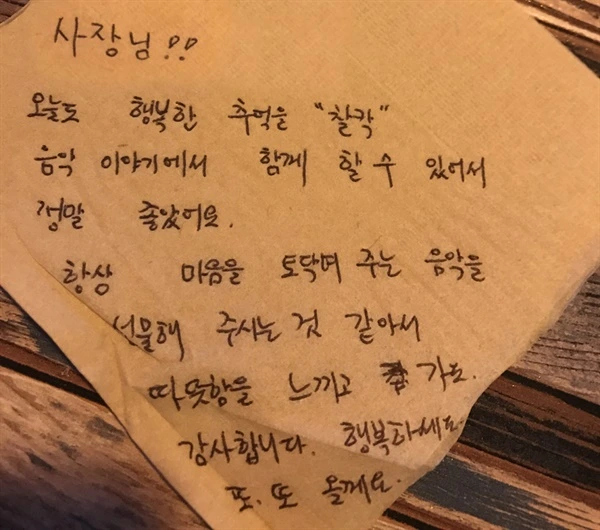 사장님!!
오늘도 행복한 추억을 "찰칵"
음악 이야기에서 함께 할 수 있어서
정말 좋았어요.
항상 마음을 토닥며 주는 음악을
선물해 주시는 것 같아서
따뜻함을 느끼고 가요.
감사합니다. 행복하세요
또. 또 올께요.